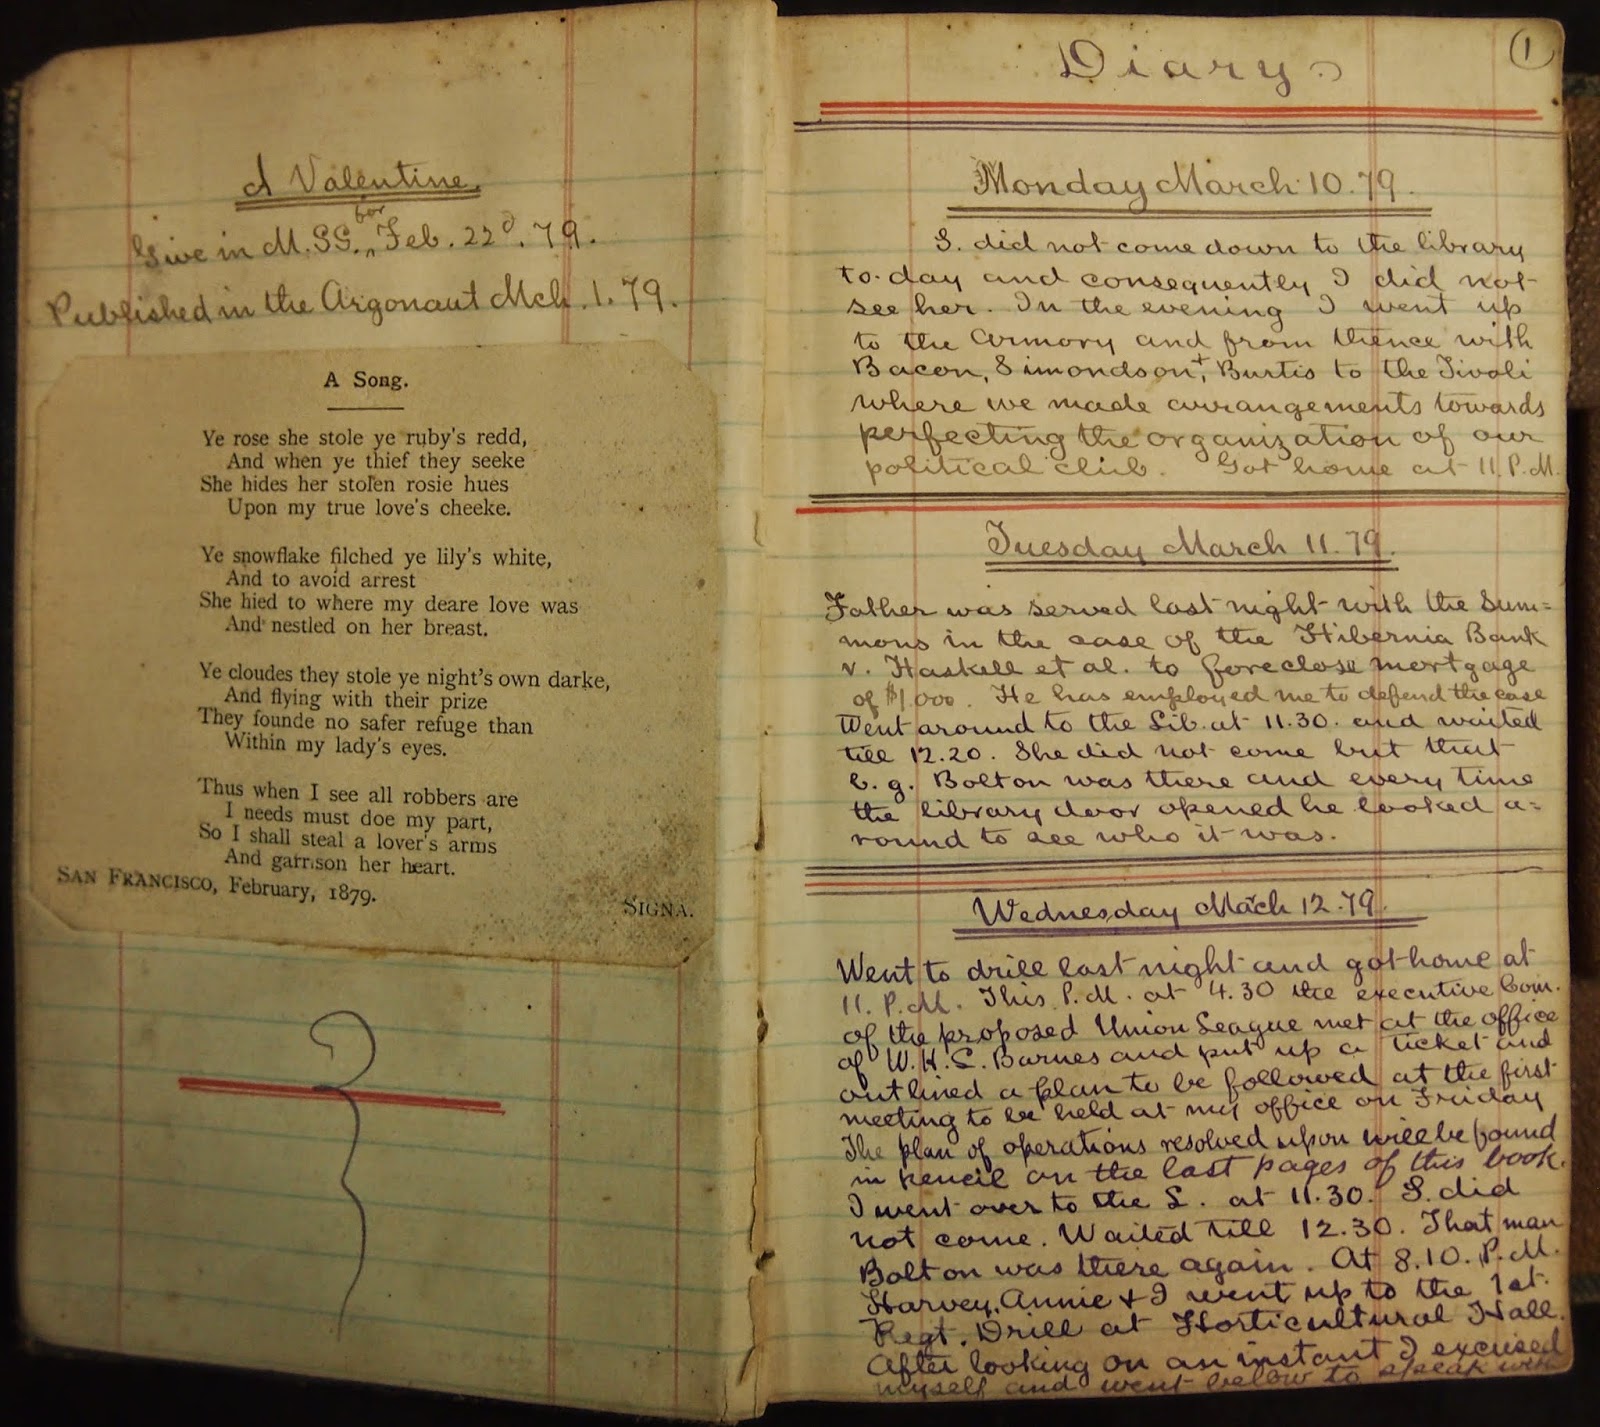 A Valentine.
Give in M.SS. for Feb. 22d. 79.
Published in the Argonaut Mch. 1. 79.
A Song.
Ye rose she stole ye ruby's redd,
And when ye thief they seeke
She hides her stolen rosie hues
Upon my true love's cheeke.
Ye snowflake filched ye lily's white,
And to avoid arrest
She hied to where my deare love was
And nestled on her breast.
Ye cloudes they stole ye night's own darke,
And flying with their prize
They founde no safer refuge than
Within my lady's eyes.
Thus when I see all robbers are
I needs must doe my part,
So I shall steal a lover's arms
And garrison her heart.
San Francisco, February, 1879.
Signa.
Diary
1
Monday March 10. 79.
S. did not come down to the library
to-day and consequently I did not
see her. In the evening I went up
to the armory and from thence with
Bacon, Simondson + Burtis to the Tivoli
where we made arrangements towards
perfecting the organization of our
political club. Got home at 11. P.M.
Tuesday March 11. 79.
Father was served last night with the Sum=
mons in the case of the Hibernia Bank
v. Haskell et al. to foreclose mortgage
of $1.000. He has employed me to defend the case
Went around to the Lib. at 11.30. and waited
till 12.20. She did not come but that
b. g. Bolton was there and every time
the library door opened he looked a=
round to see who it was.
Wednesday Mach 12. 79.
Went to drill last night and got home at
11. P.M. This P.M. at 4.30 the executive Com.
of the proposed Union League met at the office
of W. H. L. Barnes and put up a ticket and
outlined a plan to be followed at the first
meeting to be held at my office on Friday
The plan of operations resolved upon will be found
in pencil on the last pages of this book.
I went over to the L. at 11.30. S. did
not come. Waited till 12.30. That man
Bolton was there again. At 8.10. P.M.
Harvey, Annie + I went up to the 1st.
Regt. Drill at Horticultural Hall.
After looking on an instant I excused
myself and went below to speak with